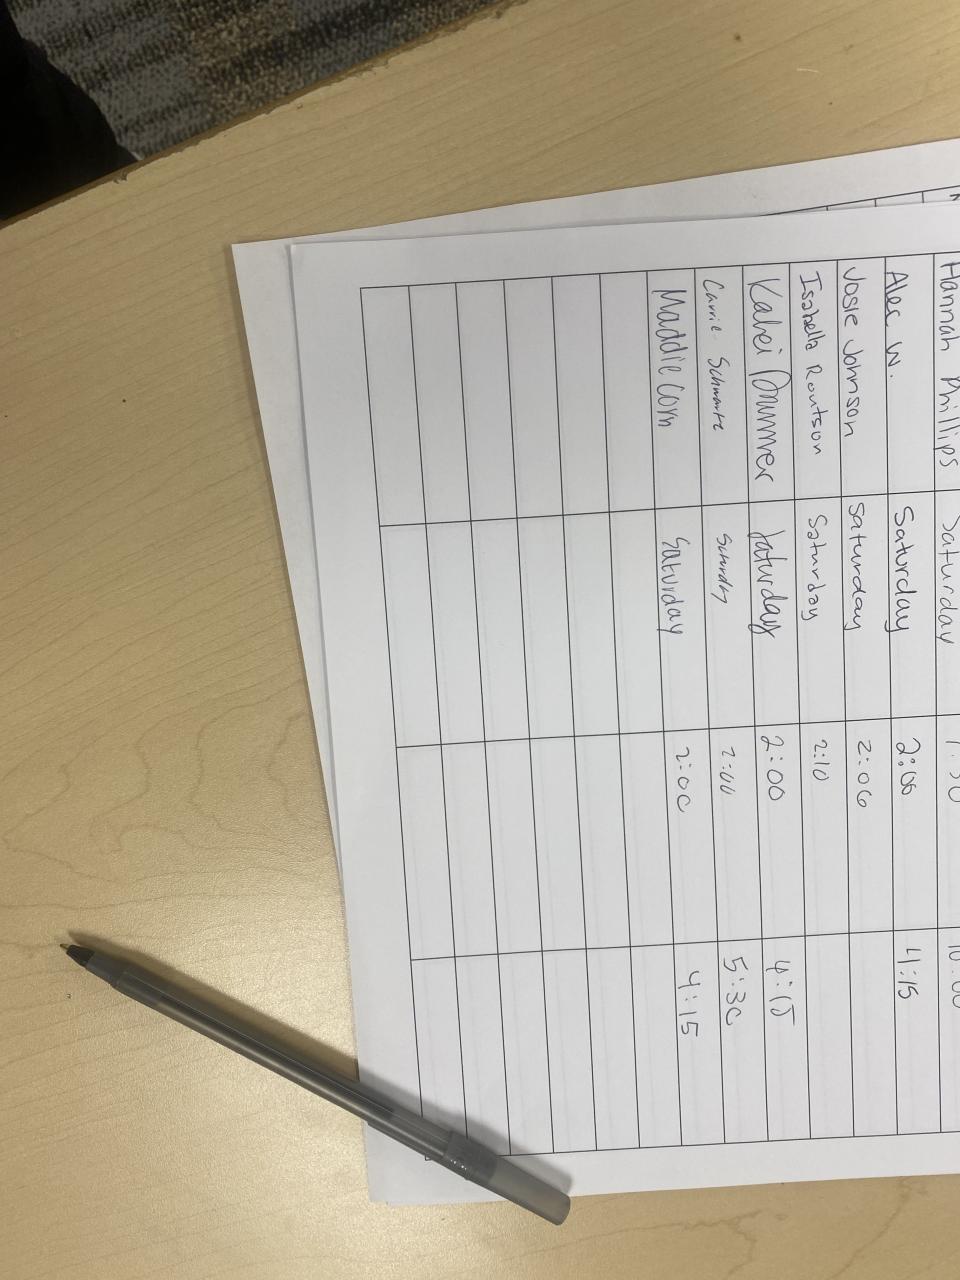 Hannah Phillips Saturday
Alec W. Saturday 2:00 4:15
Josie Johnson Saturday 2:06
Isabella Routson Saturday 2:10
Drummer Saturday 2:00 4:15
Carrie Schwartz Saturday 2:00 5:30
Maddie Corn Saturday 2:00 4:15